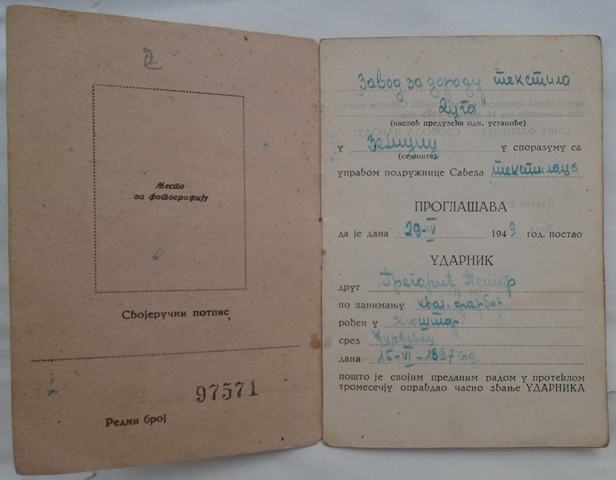 Место
за фотографију
Својеручни потпис
97571
Редни број
Завод за дораду текстила
„Дуга"
(наслов предузећа одн. установе)
у Земуну у споразуму са
(седиште)
управом подружнице Савеза текстилаца
ПРОГЛАШАВА
да је дана 29-IV 1949 год. постао
УДАРНИК
друг Грегорић Петар
по занимању квал. фарбар.
рођен у Клоштар.
срез Ђурђевац
дана 15-VI-1897 год.
пошто је својим преданим радом у протеклом
тромесечју оправдао часно звање УДАРНИКА